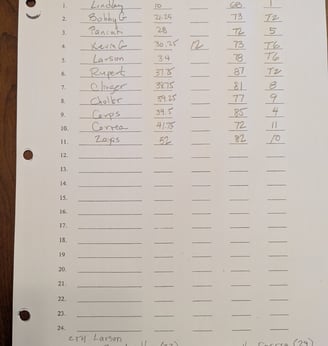 1. Lindsay 10 68 1
2. Bobby G 22.25 73 T2
3. 28 72 5
4. Kevin G 30.25 12 73 T6
5. Larson 34 78 T6
6. Rupert 37.5 87 T2
7. Clinger 38.75 81 8
8. 39.25 77 9
9. Corps 39.5 85 4
10. Correa 41.75 72 11
11. Zaps 52 82 10
12.
13.
14.
15.
16.
17.
18.
19.
20.
21.
22.
23.
24.
CTP Larson
Correa (24)